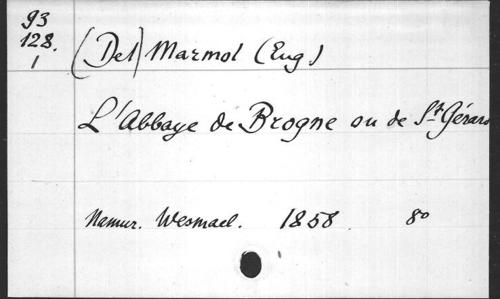 93
128.
1
(Del) Marmol (Eug)
L'Abbaye de Brogne ou de St Gérard
Namur. Wesmael. 1858. 8o